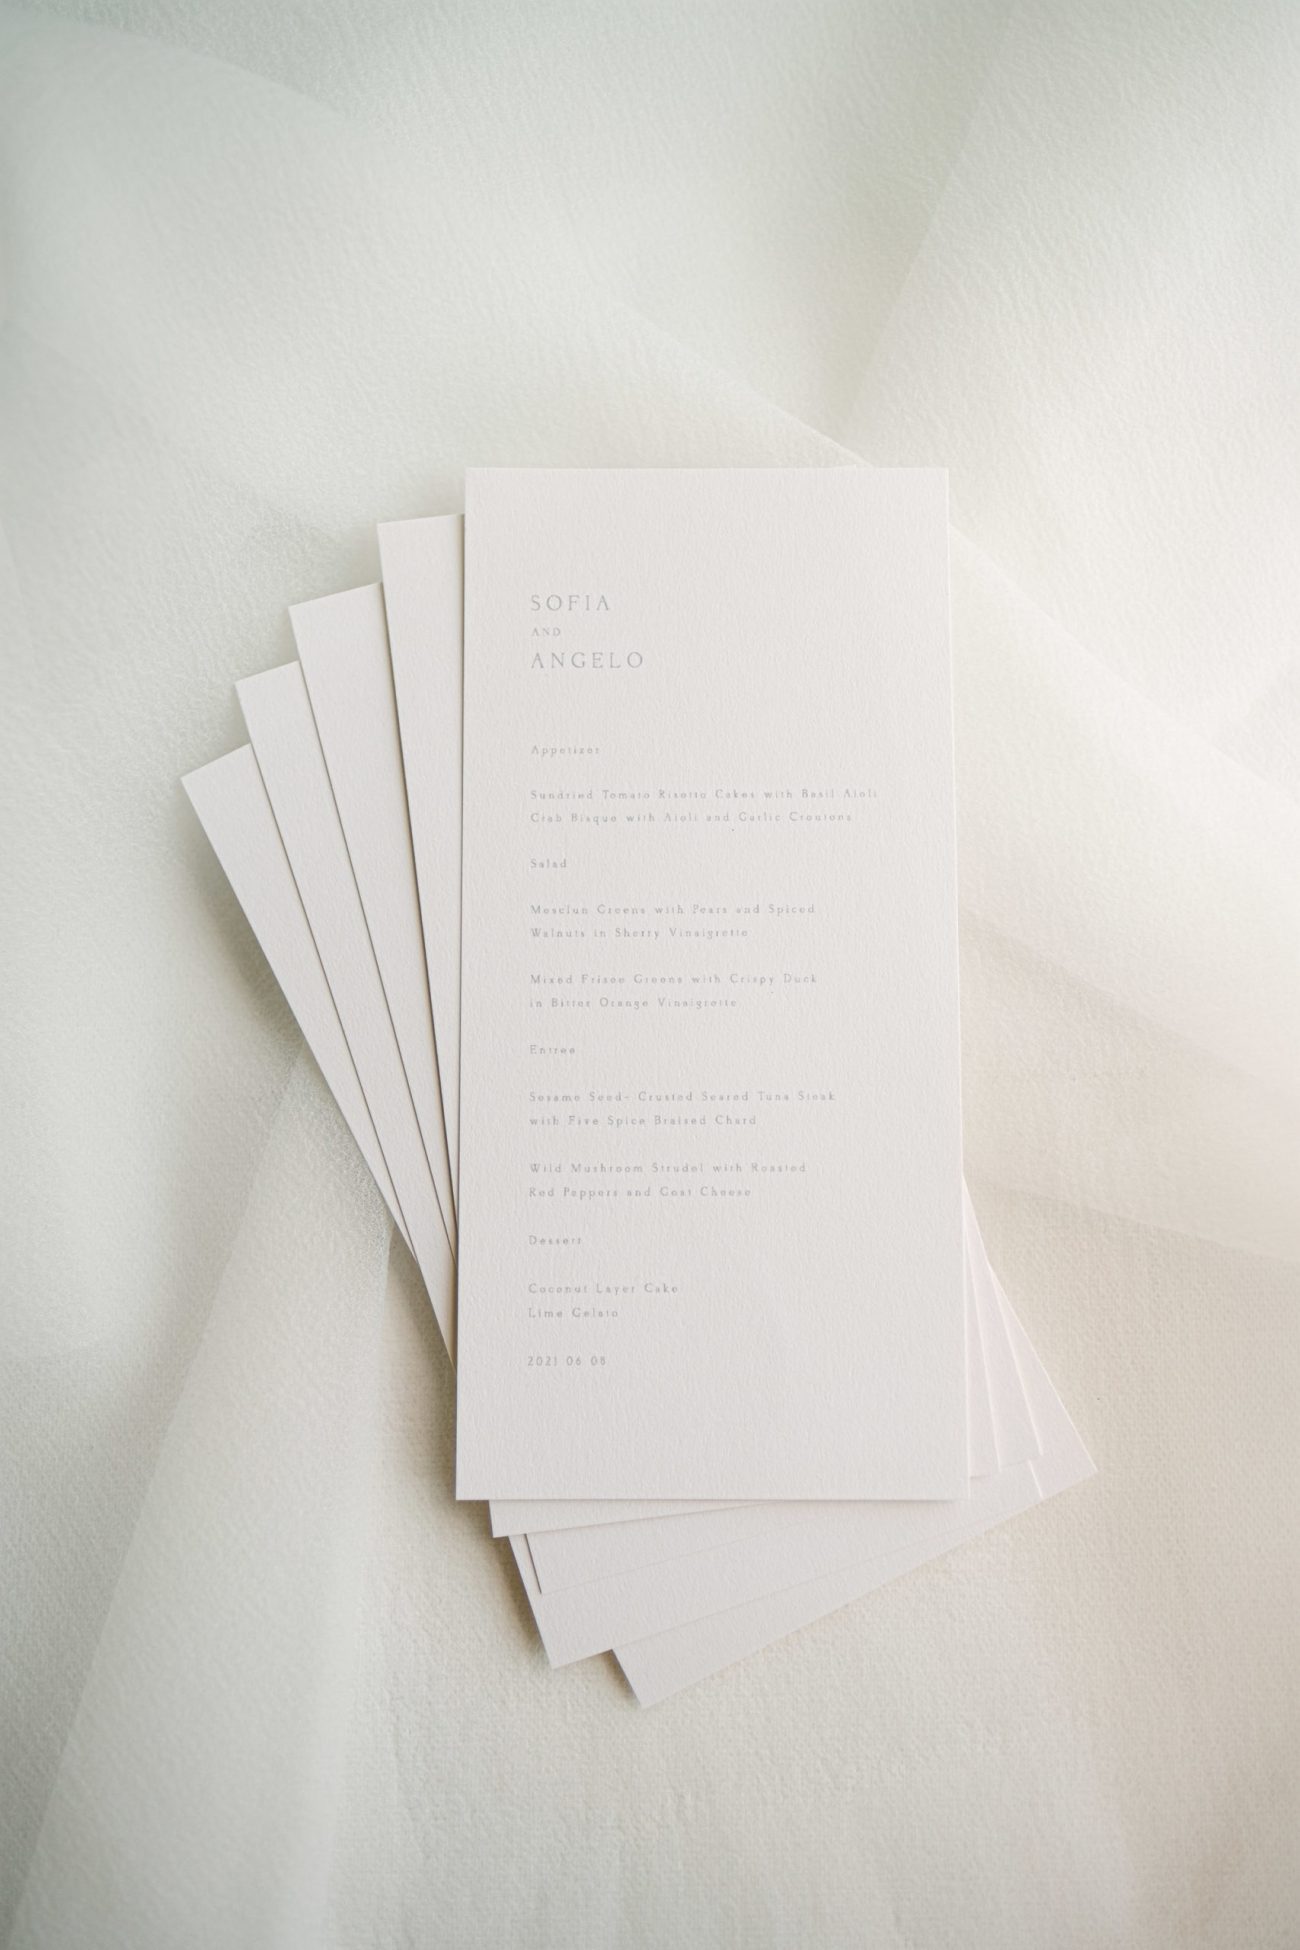 SOFIA
AND
ANGELO
Appetizer
Sundried Tomato Risotto Cakes with Basil Aioli
Crab Bisque with Aioli and Garlic Croutons
Salad
Mesclun Greens with Pears and Spiced
Walnuts in Sherry Vinaigrette
Mixed Frisee Greens with Crispy Duck
in Bitter Orange Vinaigrette
Entree
Sesame Seed- Crusted Seared Tuna Steak
with Five Spice Braised Chard
Wild Mushroom Strudel with Roasted
Red Peppers and Goat Cheese
Dessert
Coconut Layer Cake
Lime Gelato
2021 06 08